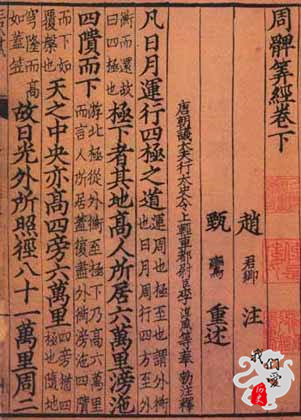 周髀筭經卷下
趙 君卿 注
甄 鸞 重述
唐朝議大夫行太史令上輕車都尉臣李淳風等奉 勅注釋
凡日月運行四極之道 運周也極至也謂外衡也日月周行四方至外
衡而還故曰四極也 極下者其地高人所居六萬里滂沲
四隤而下 游北極從外衡至極下乃高六萬里而言人所居蓋復盡外衡滂沲四隤
而下如覆槃也 天之中央亦高四旁六萬里 四旁猶四極也隨地
穹隆而高如蓋笠 故日光外所照徑八十一萬里周二
我們愛